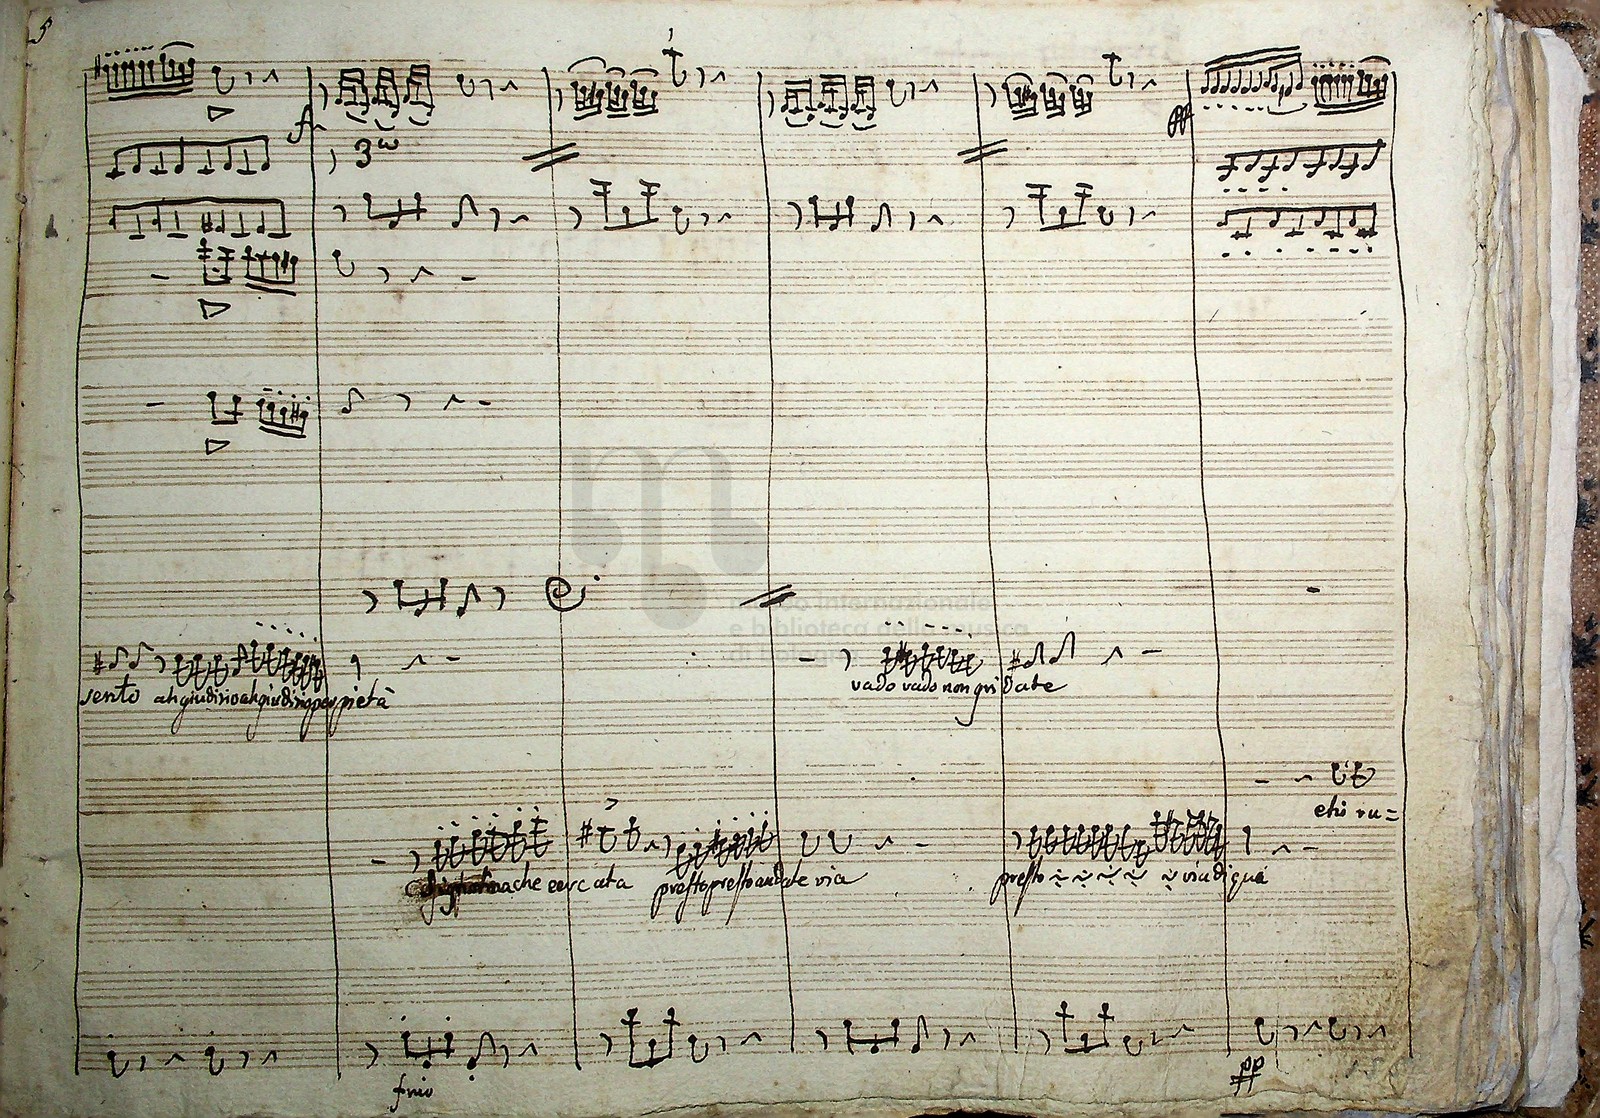 5
f
3
pp
museo internazionale
e biblioteca della musica
di bologna
vado vado non gridate
sento ah giudizio ah giudizio per pietà
ehi ru=
che cercata presto presto andate via presto via di quà
pp